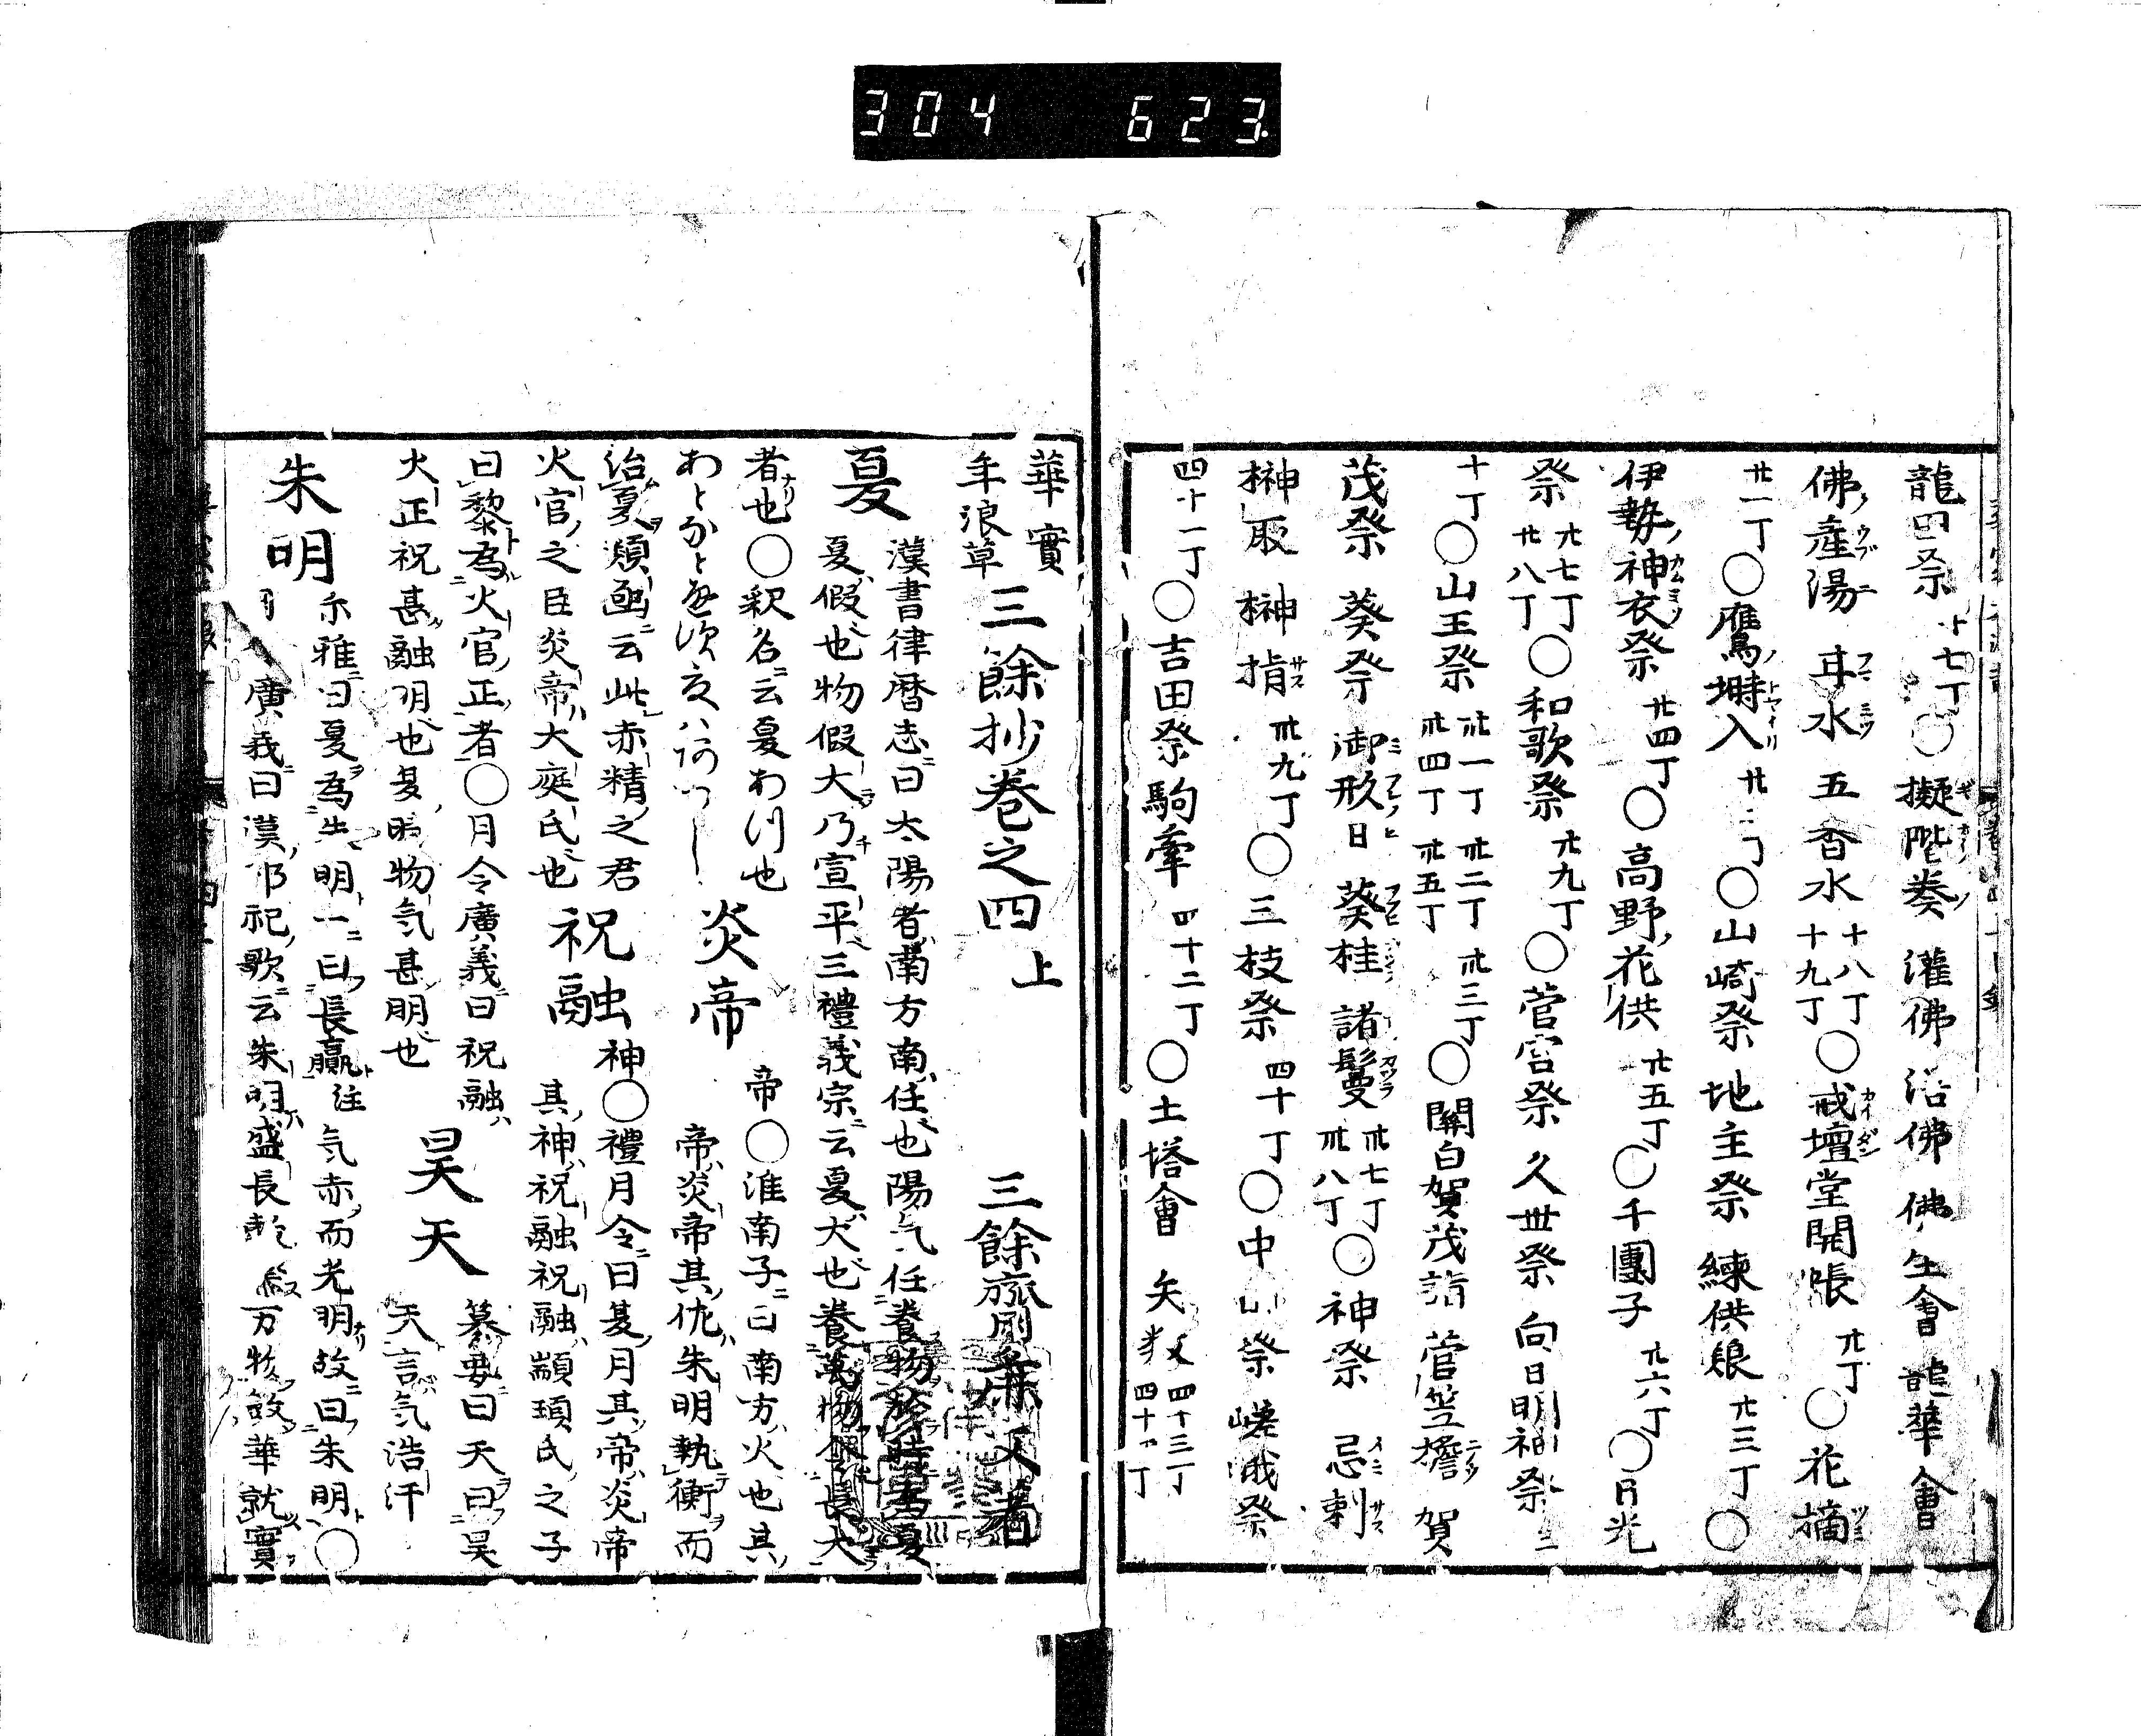 304 623
龍田祭 十七丁 ○擬階奏 灌佛 浴佛 佛生會 龍華會
佛産湯 耳水 五香水 十八丁 十九丁 ○戒壇堂開帳 廿丁 ○花摘
廿一丁 ○鷹塒入 ○山崎祭 地主祭 練供養 廿三丁 ○
伊勢神衣祭 廿四丁 ○高野花供 廿五丁 ○千團子 廿六丁 ○日光
祭 廿七丁 廿八丁 ○和歌祭 廿九丁 ○菅宮祭 久世祭 向日明神祭
十丁 ○山王祭 卅一丁 卅二丁 卅三丁 卅四丁 卅五丁 ○關白賀茂詣 菅笠擔 賀
茂祭 葵祭 御形日 葵桂 諸鬘 卅七丁 卅八丁 ○神祭 忌刺
榊取 榊指 卅九丁 ○三枝祭 四十丁 ○中山祭 嵯峨祭
四十一丁 ○吉田祭 駒牽 四十二丁 ○土塔會 矢数 四十三丁
華實年浪草三餘抄巻之四上 三餘齋
夏 漢書律暦志曰太陽者南方南任也陽气任養物於時為夏
夏假也物假大乃宣平三禮義宗云夏大也養萬物令長大
者也○釈名云夏
炎帝 帝○淮南子曰南方火也其
帝炎帝其佐朱明執衡而
治夏頻函云此赤精之君
火官之臣炎帝大庭氏也
祝融 神○禮月令曰夏月其帝炎帝
其神祝融祝融顓頊氏之子
曰黎為火官正者○月令廣義曰祝融
火正祝甚融明也夏時物気甚明也
昊天 纂要曰天曰昊
天言気浩汗
朱明 尓雅曰夏為朱明一曰長贏註気赤而光明故曰朱明○
廣義曰漢郊祀歌云朱明盛長敷 万物 華就實